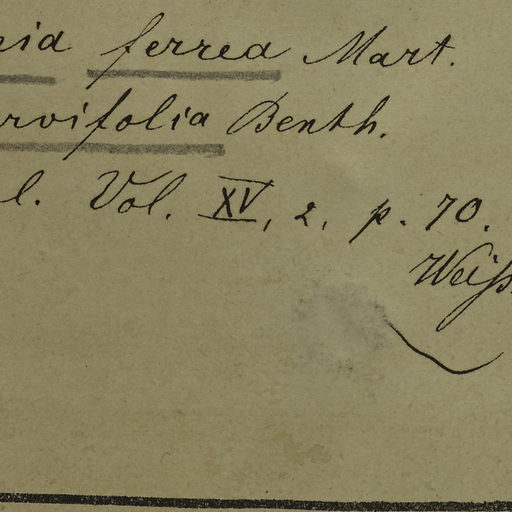 nia ferrea Mart.
rvifolia Benth.
l. Vol. XV, 2, p. 70.
Weiss